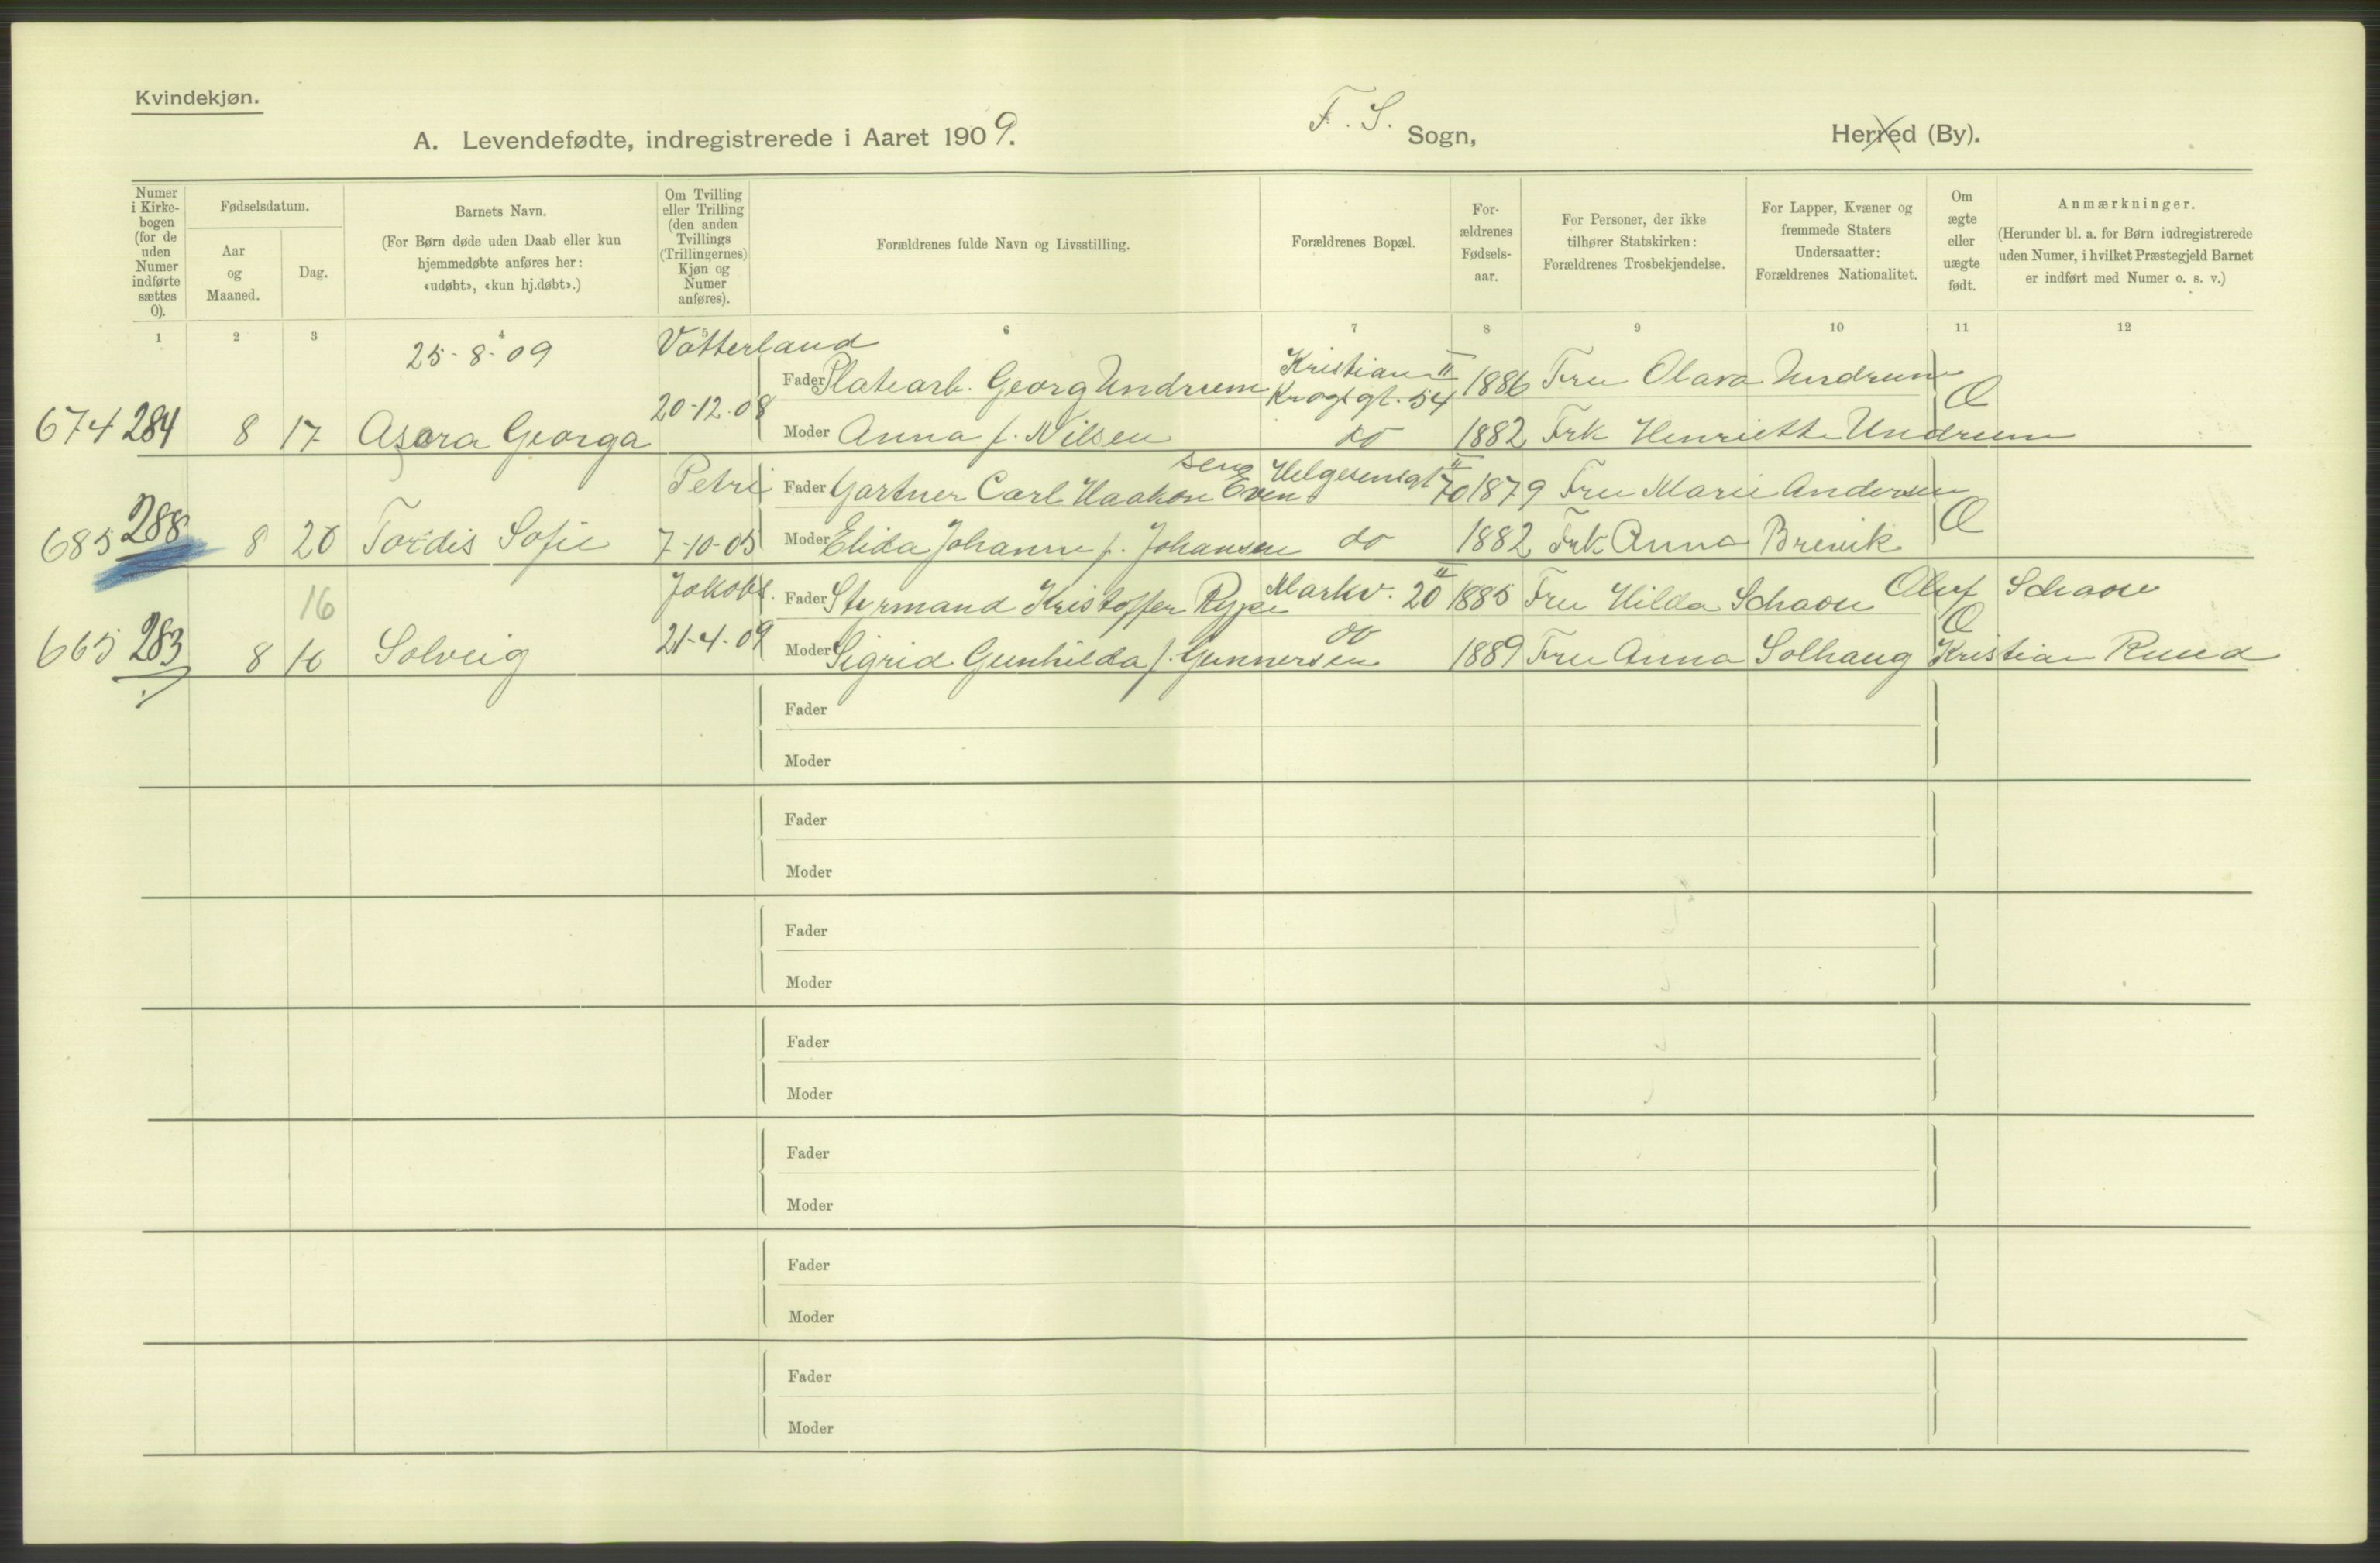 Kvindekjøn.
A. Levendefødte, indregistrerede i Aaret 1909.
F. S. Sogn,
Herred (By).
Numer i Kirkebogen (for de uden Numer indførte sættes 0).
Fødselsdatum.
Aar og Maaned.
Dag.
Barnets Navn.
(For Børn døde uden Daab eller kun hjemmedøbte anføres her: «udøbt», «kun hj.døbt».)
Om Tvilling eller Trilling (den anden Tvillings (Trillingernes) Kjøn og Numer anføres).
Forældrenes fulde Navn og Livsstilling.
Forældrenes Bopæl.
For-ældrenes Fødsels-aar.
For Personer, der ikke tilhører Statskirken: Forældrenes Trosbekjendelse.
For Lapper, Kvæner og fremmede Staters Undersaatter: Forældrenes Nationalitet.
Om ægte eller uægte født.
Anmærkninger.
(Herunder bl. a. for Børn indregistrerede uden Numer, i hvilket Præstegjeld Barnet er indført med Numer o. s. v.)
1 2 3 4 5 6 7 8 9 10 11 12
25-8-09 Vatterland
Fader Platearb. Georg Undrum Kristian Krogs gt. 54 II 1886 Fru Olava Undrum
674 284 8 17 Asora Georga 20-12-08
Moder Anna f. Nilsen do 1882 Frk Henriette Undrum Æ
Petri Fader Gartner Carl Haakon Evensen Helgesensgt 70 II 1879 Fru Marie Andersen
685 288 8 20 Tordis Sofie 7-10-05 Moder Elida Johanne f. Johansen do 1882 Frk Anna Brevik Æ
16 Jakobs. Fader Styrmand Kristoffer Rype Markv. 20 II 1885 Fru Hilda Schaou Oluf Schaou
665 283 8 16 Solveig 21-4-09 Moder Sigrid Gunhilda f. Gunnersen do 1889 Fru Anna Solhaug Æ Kristian Ruud
Fader
Moder
Fader
Moder
Fader
Moder
Fader
Moder
Fader
Moder
Fader
Moder
Fader
Moder